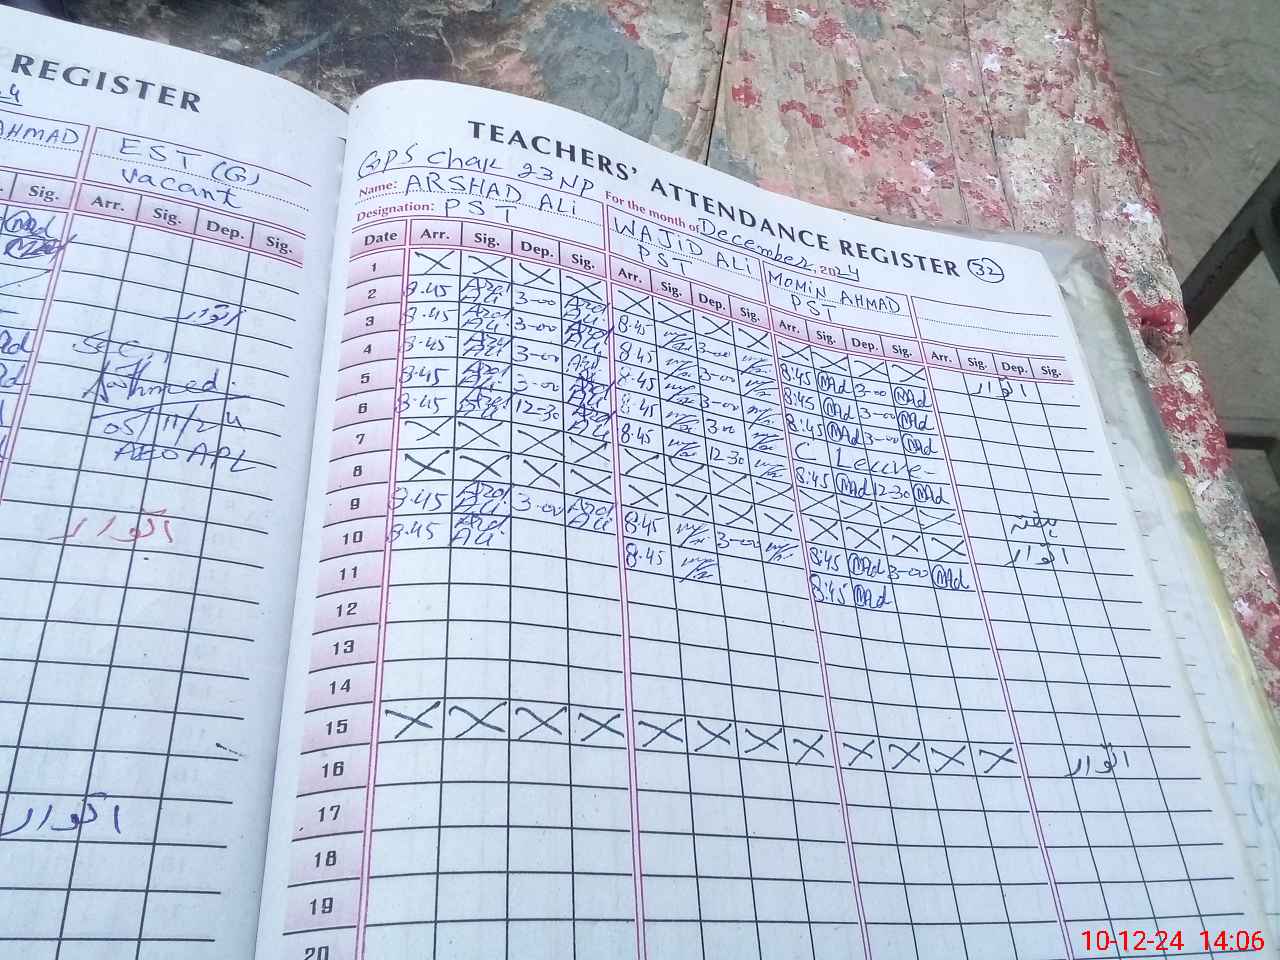 REGISTER
AHMAD
EST (G)
vacant
Sig. Arr. Sig. Dep. Sig.
اتوار
05/11/24
AEO APE
اتوار
اتوار
TEACHERS' ATTENDANCE REGISTER 32
GPS Chak 23 NP
For the month of December, 2024
Name: ARSHAD ALi WAJID ALi MOMIN AHMAD
Designation: PST PST PST
Date Arr. Sig. Dep. Sig. Arr. Sig. Dep. Sig. Arr. Sig. Dep. Sig. Arr. Sig. Dep. Sig.
1 X X X X X X X X X X X X اتوار
2 8.45 Ali 3-00 Ali 8.45 3-00 8:45 MAd 3-00 MAd
3 8.45 Ali 3-00 Ali 8.45 3-00 8:45 MAd 3-00 MAd
4 8.45 Ali 3-00 Ali 8.45 3-00 8:45 MAd 3-00 MAd
5 8.45 Ali 3-00 Ali 8.45 3 00 C Leuve-
6 8.45 Ali 12-30 Ali 8.45 12-30 8:45 MAd 12-30 MAd
7 X X X X X X X X X X X X ہفتہ
8 X X X X X X X X X X X X اتوار
9 8.45 Ali 3-00 Ali 8.45 3-00 8:45 MAd 3-00 MAd
10 8.45 Ali 8.45 8:45 MAd
11
12
13
14
15 X X X X X X X X X X X X اتوار
16
17
18
19
20
10-12-24 14:06